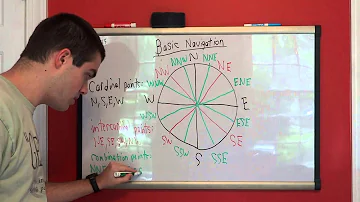 Basic Navigation
N
NNW NNE
NW NE
WNW ENE
Cardinal points:
N, S, E, W
W E
WSW ESE
intercardinal points:
SW SE
SSW SSE
S
combination points: